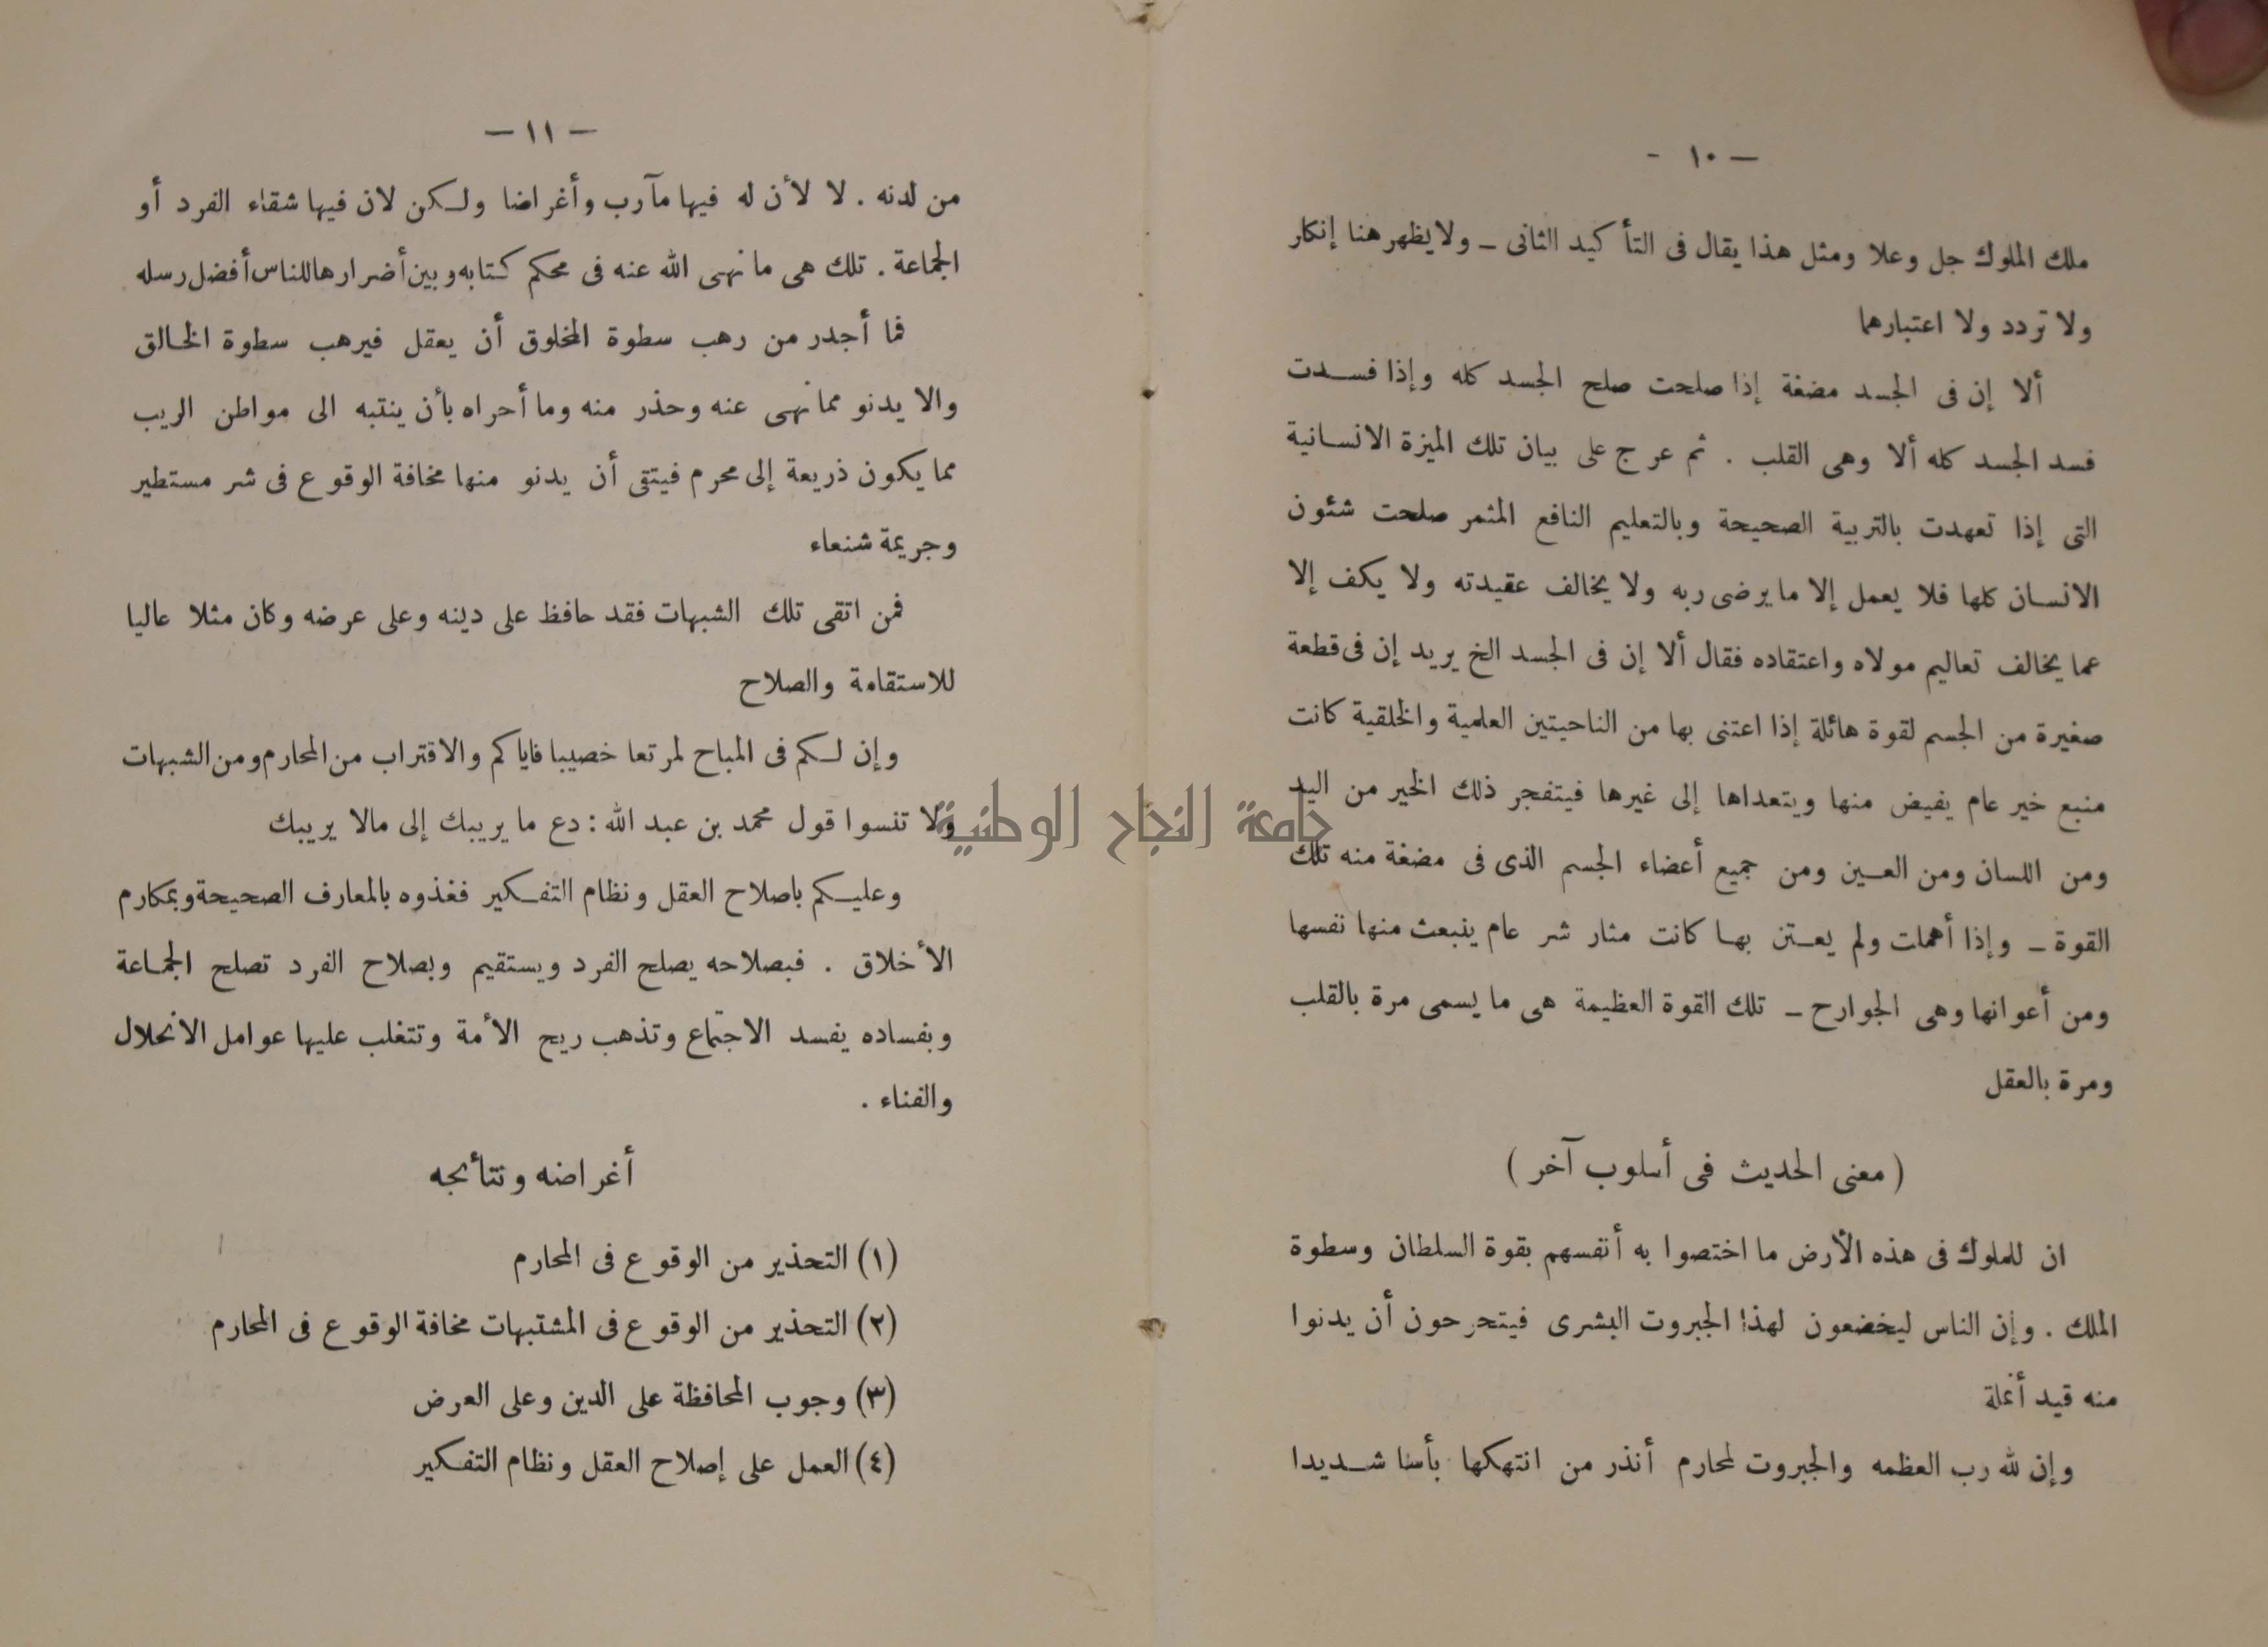 — ١٠ -
ملك الملوك جل وعلا ومثل هذا يقال فى التأكيد الثانى – ولا يظهر هنا إنكار
ولا تردد ولا اعتبارهما
ألا إن فى الجسد مضغة إذا صلحت صلح الجسد كله وإذا فسدت
فسد الجسد كله ألا وهى القلب . ثم عرج على بيان تلك الميزة الانسانية
التى إذا تعهدت بالتربية الصحيحة وبالتعليم النافع المثمر صلحت شئون
الانسان كلها فلا يعمل إلا ما يرضى ربه ولا يخالف عقيدته ولا يكف إلا
عما يخالف تعاليم مولاه واعتقاده فقال ألا إن فى الجسد الخ يريد إن فى قطعة
صغيرة من الجسم لقوة هائلة إذا اعتنى بها من الناحيتين العلمية والخلقية كانت
منبع خير عام يفيض منها ويتعداها إلى غيرها فيتفجر ذلك الخير من اليد
ومن اللسان ومن العين ومن جميع أعضاء الجسم الذى فى مضغة منه تلك
القوة – وإذا أهملت ولم يعتن بها كانت مثار شر عام ينبعث منها نفسها
ومن أعوانها وهى الجوارح – تلك القوة العظيمة هى ما يسمى مرة بالقلب
ومرة بالعقل
( معنى الحديث فى أسلوب آخر )
ان للملوك فى هذه الأرض ما اختصوا به أنفسهم بقوة السلطان وسطوة
الملك . وإن الناس ليخضعون لهذا الجبروت البشرى فيتحرحون أن يدنوا
منه قيد أنملة
وإن لله رب العظمه والجبروت لمحارم أنذر من انتهكها بأسا شديدا
— ١١ —
من لدنه . لا لأن له فيها مآرب وأغراضا ولكن لان فيها شقاء الفرد أو
الجماعة . تلك هى ما نهى الله عنه فى محكم كتابه وبين أضرارها للناس أفضل رسله
فما أجدر من رهب سطوة المخلوق أن يعقل فيرهب سطوة الخالق
والا يدنو مما نهى عنه وحذر منه وما أحراه بأن ينتبه الى مواطن الريب
مما يكون ذريعة إلى محرم فيتقى أن يدنو منها مخافة الوقوع فى شر مستطير
وجريمة شنعاء
فمن اتقى تلك الشبهات فقد حافظ على دينه وعلى عرضه وكان مثلا عاليا
للاستقامة والصلاح
وإن لكم فى المباح لمرتعا خصيبا فاياكم والاقتراب من المحارم ومن الشبهات
ولا تنسوا قول محمد بن عبد الله : دع ما يريبك إلى مالا يريبك
وعليكم باصلاح العقل ونظام التفكير فغذوه بالمعارف الصحيحة وبمكارم
الأخلاق . فبصلاحه يصلح الفرد ويستقيم وبصلاح الفرد تصلح الجماعة
وبفساده يفسد الاجتماع وتذهب ريح الأمة وتتغلب عليها عوامل الانحلال
والفناء .
أغراضه ونتأئجه
(١) التحذير من الوقوع فى المحارم
(٢) التحذير من الوقوع فى المشتبهات مخافة الوقوع فى المحارم
(٣) وجوب المحافظة على الدين وعلى العرض
(٤) العمل على إصلاح العقل ونظام التفكير
جامعة النجاح الوطنية